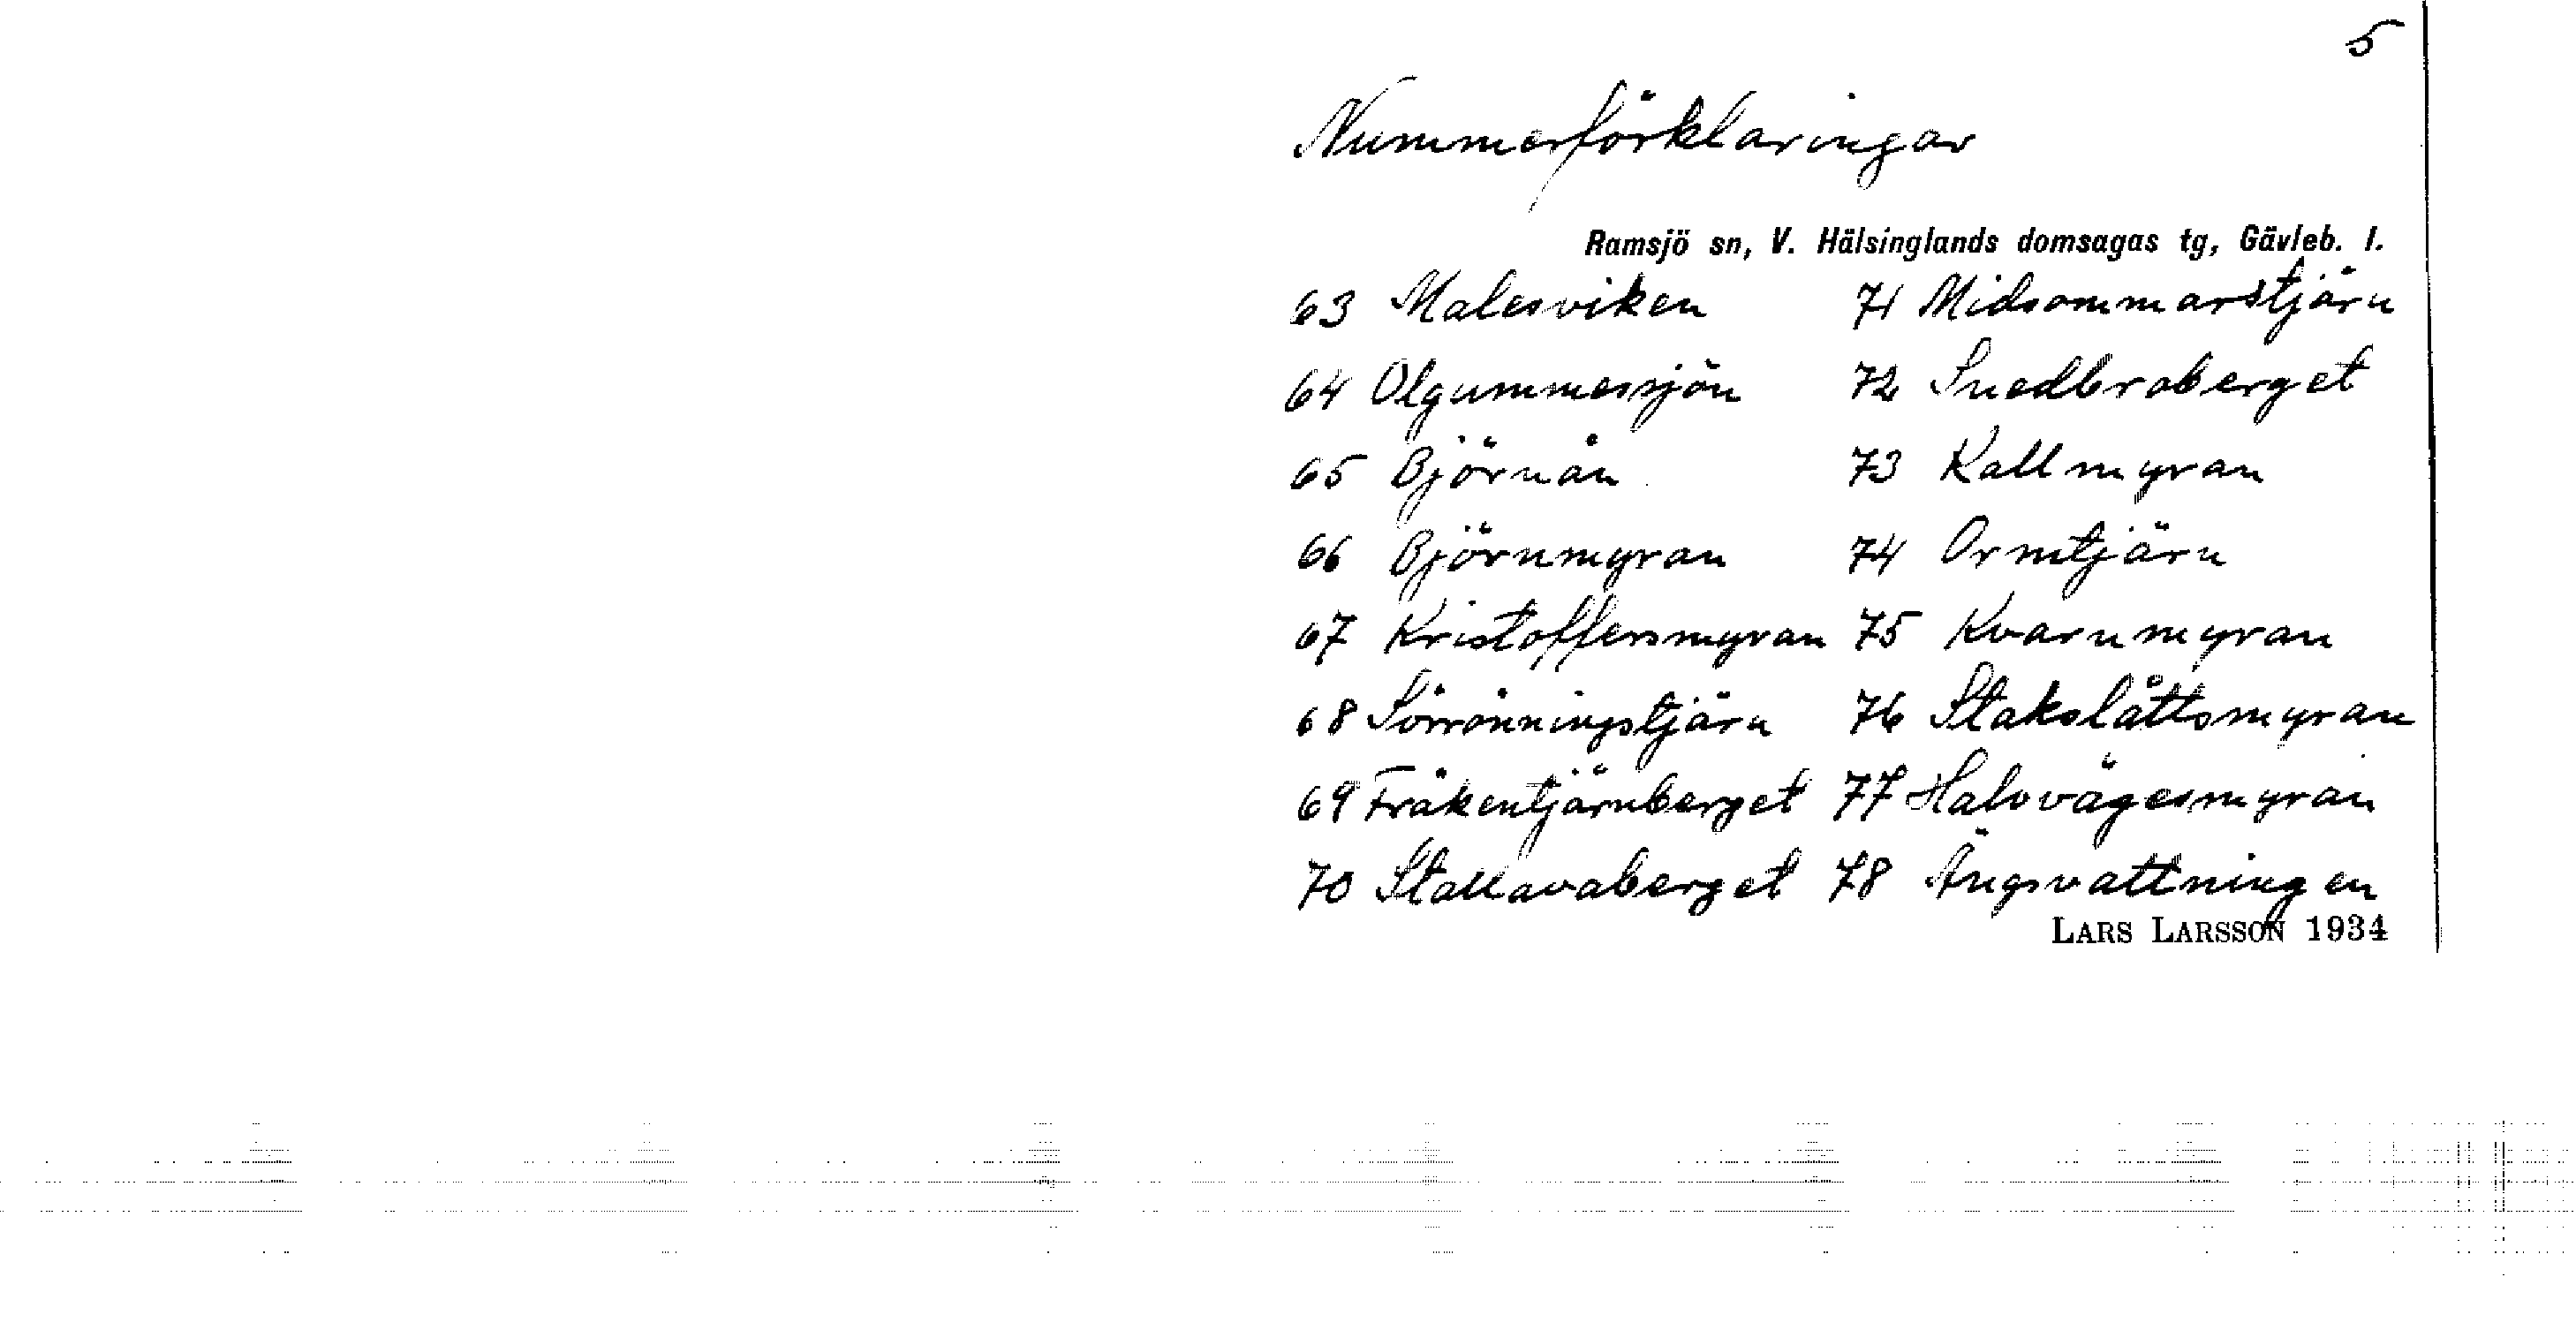 5
Nummerförklaringar
Ramsjö sn, V. Hälsinglands domsagas tg, Gävleb. l.
63 Malesviken 71 Midsommarstjärn
64 Olgummessjön 72 Snedbroberget
65 Björnån 73 Kallmyran
66 Björnmyran 74 Ormtjärn
67 Kristoffersmyran 75 Kvarnmyran
68 Sörrönningstjärn 76 Stakslåttsmyran
69 Fräkentjärnberget 77 Halvvägesmyran
70 Stallavaberget 78 Ängsvattningen
LARS LARSSON 1934